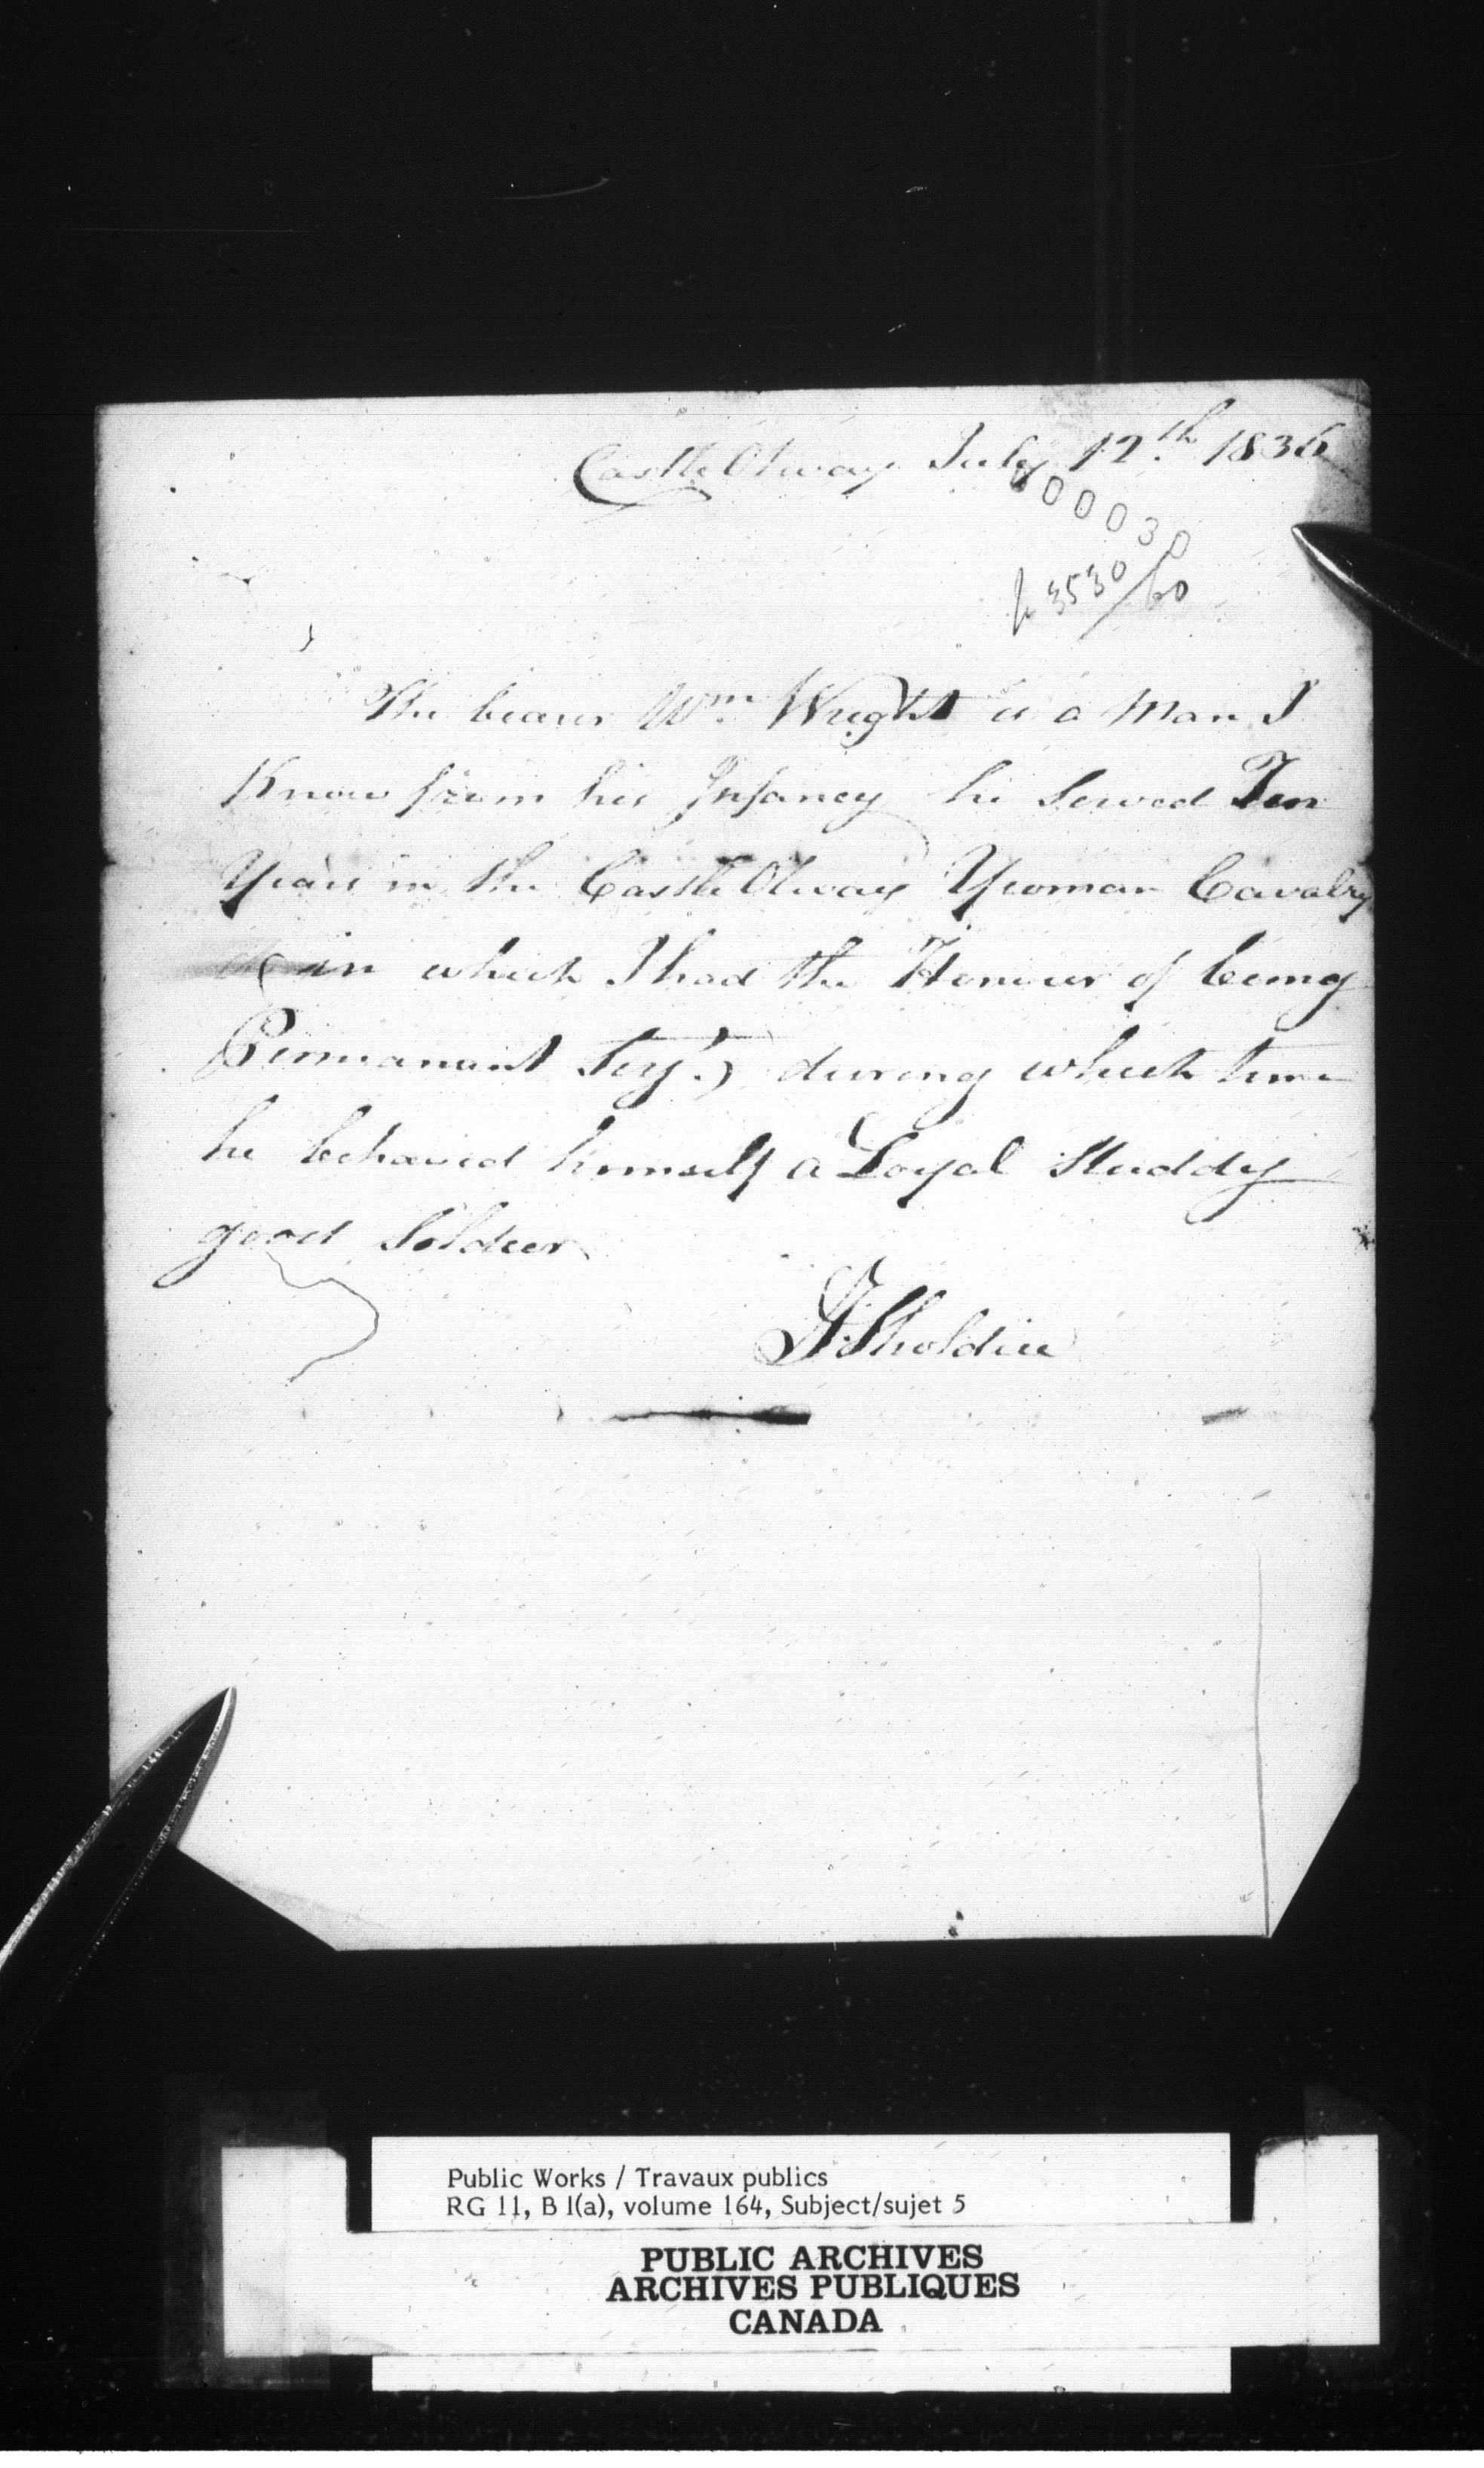 Castle Otway July 12th 1836
000030
3530/60
The bearer Wm. Wright is a Man I
Know from his Infancy he Served Ten
Years in the Castle Otway Yeoman Cavalry
(in which I had the Honour of being
Permanant Serjt.) during which time
he behaved himself a Loyal Studdy
good Soldier
Sholdice
Public Works / Travaux publics
RG 11, B 1(a), volume 164, Subject/sujet 5
PUBLIC ARCHIVES
ARCHIVES PUBLIQUES
CANADA